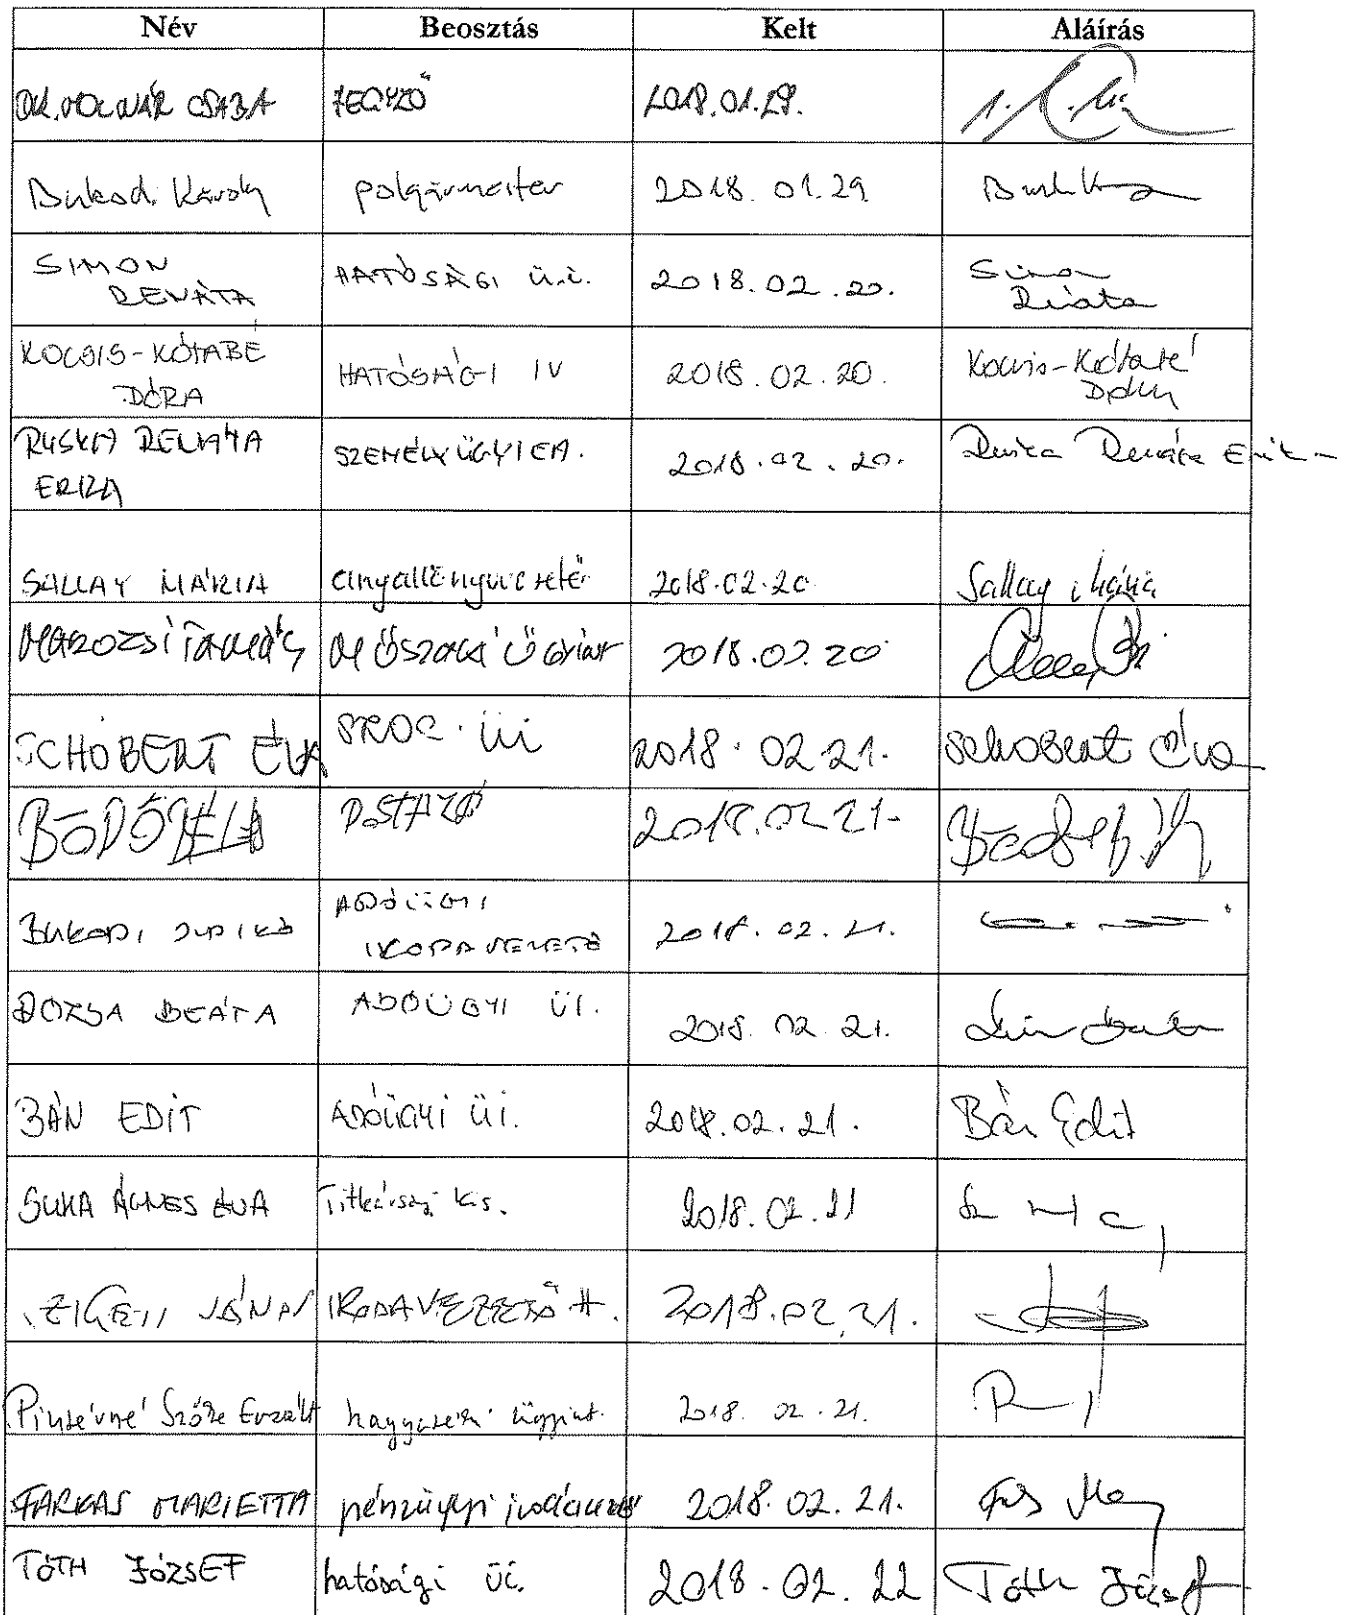 Név Beosztás Kelt Aláírás
DR. MOLNÁR CSABA JEGYZŐ 2018.01.29.
Bukodi Károly polgármester 2018. 01.29
SIMON HATÓSÁGI ü.i. 2018.02.20. Simon
RENÁTA Renáta
KOCSIS-KÓTABÉ HATÓSÁGI 2018.02.20. Kocsis-Kótabé
DÓRA Dóra
RUSKA RENÁTA SZEMÉLYÜGYI 2018.02.20. Ruska Renáta Erika
ERIKA
SALLAY MÁRIA anyakönyvvezető 2018.02.20 Sallay Mária
MAROZSI TAMÁS MŰSZAKI ÜGYINT 2018.02.20
SCHOBERT ÉVA SZOC. ÜI 2018.02.21. Schobert Éva
BÖDŐ BÉLA POSTÁZÓ 2018.02.21.
BUKODI ILDIKÓ ADÓÜGYI 2018.02.21.
IRODAVEZETŐ
DÓZSA BEÁTA ADÓÜGYI ÜI. 2018.02.21.
BÁN EDIT ADÓÜGYI ÜI. 2018.02.21. Bán Edit
SUHA ÁGNES ÉVA Titkársági 2018.02.21
JÁNOS IRODAVEZETŐ H. 2018.02.21.
Pintérné Szőke Erzsébet hagyatéki ügyint. 2018.02.21.
FARKAS MARIETTA pénzügyi irodavezető 2018.02.21.
TÓTH JÓZSEF hatósági üi. 2018.02.22 Tóth József